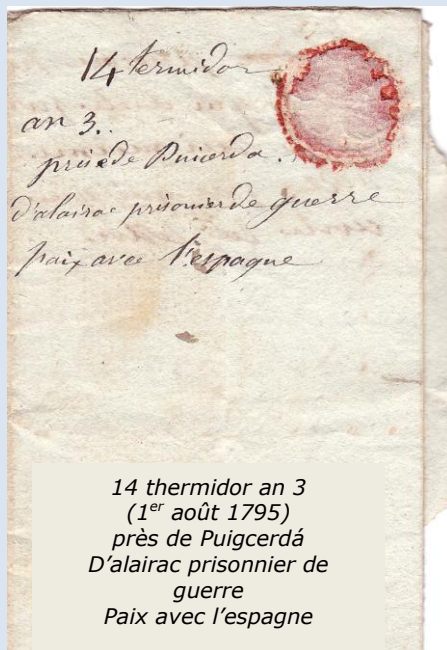 14 termidor
an 3..
prise de Puicerda.
d'alairac prisonier de guerre
paix avec l'espagne
14 thermidor an 3
(1er août 1795)
près de Puigcerdá
D'alairac prisonnier de
guerre
Paix avec l'espagne